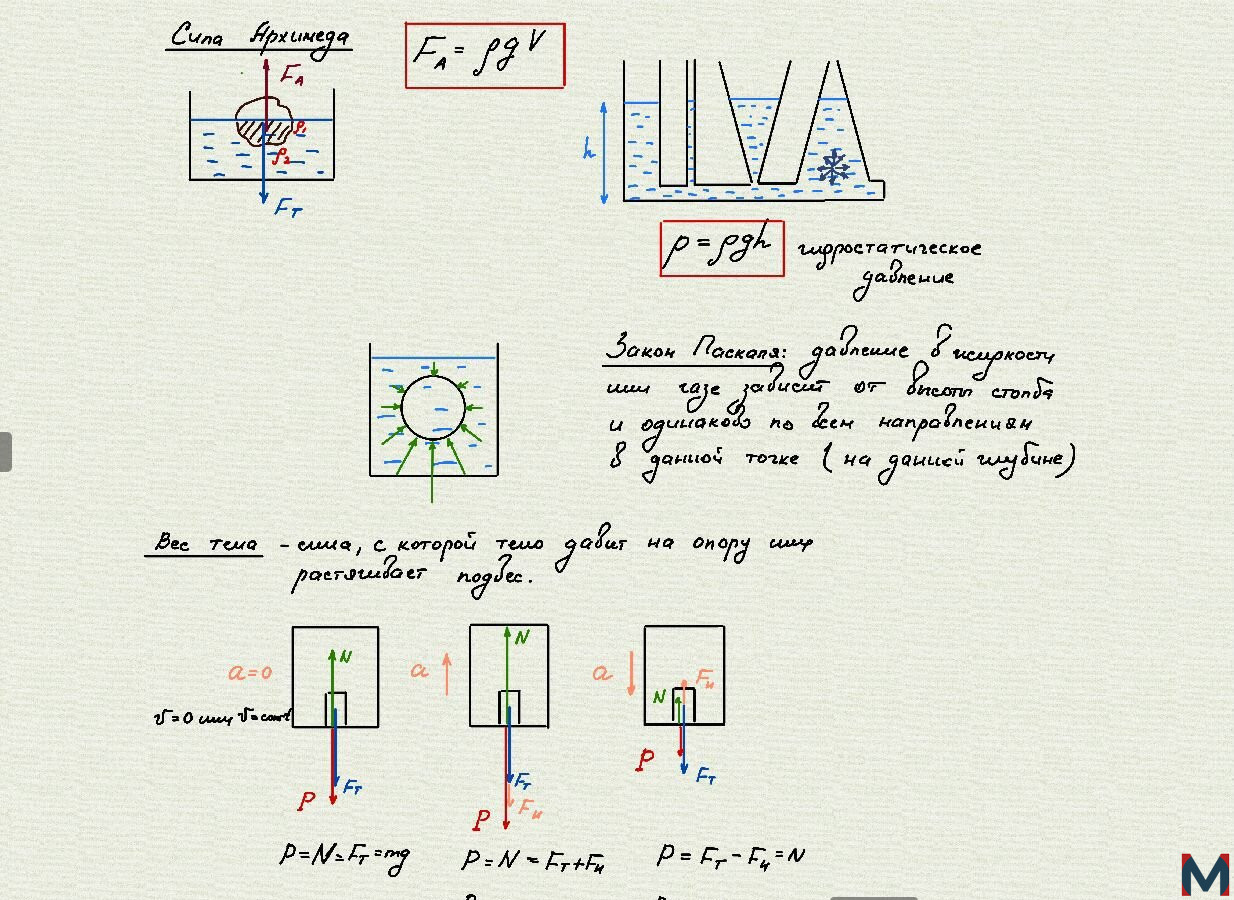 Сила Архимеда
F_A = ρgV
F_A
ρ₁
ρ₂
F_T
h
p = ρgh
гидростатическое
давление
Закон Паскаля: давление в жидкости
или газе зависит от высоты столба
и одинаково по всем направлениям
в данной точке (на данной глубине)
Вес тела - сила, с которой тело давит на опору или
растягивает подвес.
a=0
N
a
N
a
N
F_и
v=0 или v=const
F_T
P
F_T
F_и
P
P
F_T
P=N=F_T=mg
P=N=F_T+F_и
P=F_T-F_и=N
M